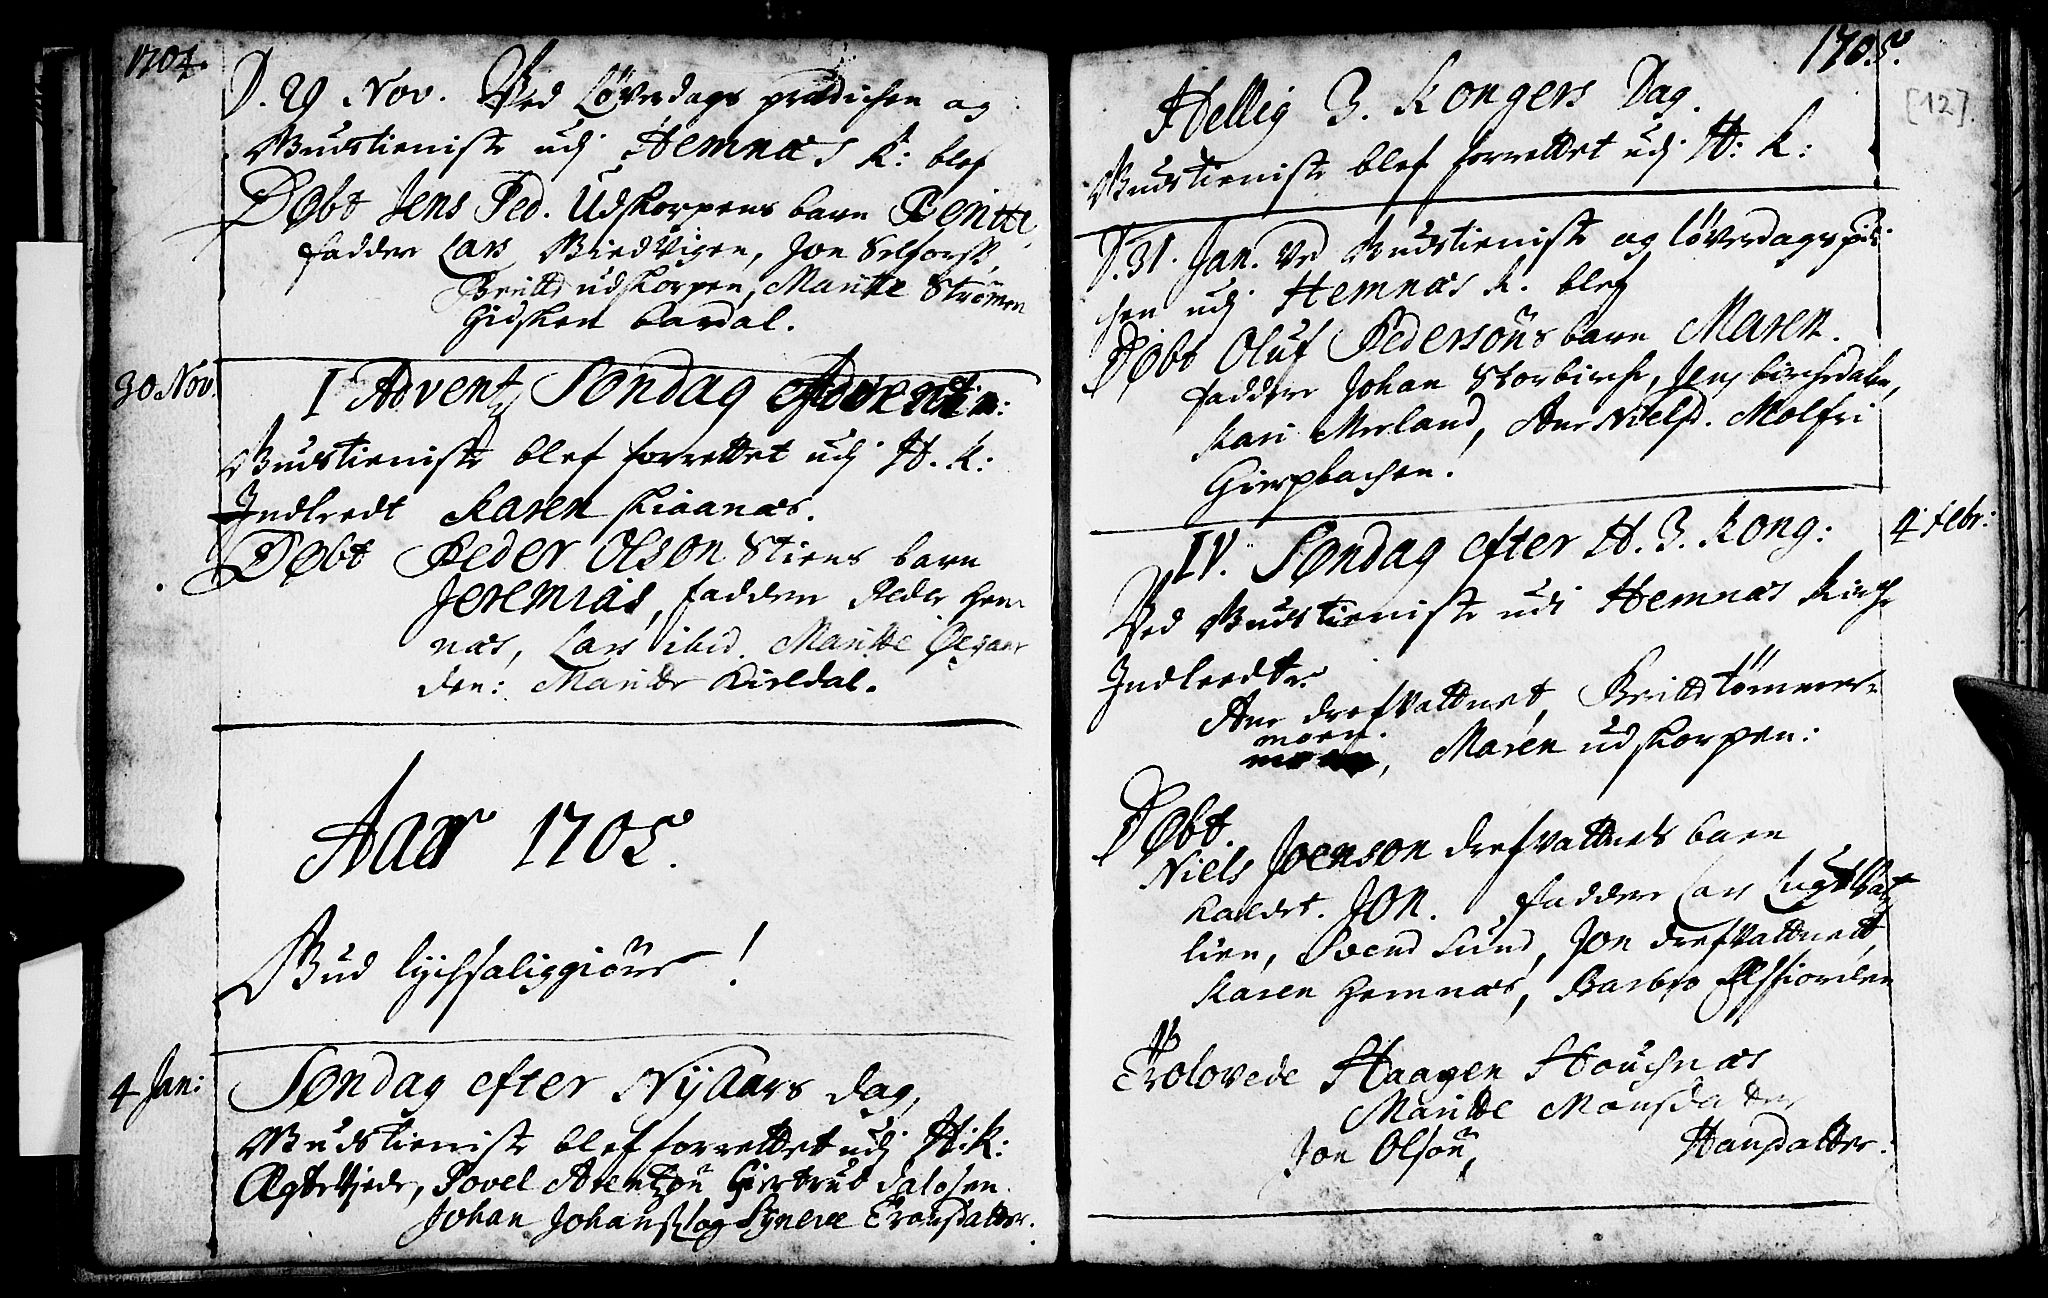 1704.
D. 29 Nov. Ved Løverdags prædichen og
Gudstieniste udj Hemnæs K: blef
Døbt Jens Ped. Udskorpens barn
Fadder Lars Jon Selforss,
Britte udskorpen, Maritte Strømen
Gidsken bardal.
30 Nov.
I Advent Søndag
Gudstieniste blef forrettet udj H. K:
Indleedt Karen
Døbt Peder Olson Stiens barn
Jeremias, fadder Peder Hem
næs, Lars ibid. Maritte
den: Maritte Kieldal.
Aar 1705.
Gud lychsaliggiöre !
4 Jan:
Søndag efter Nÿaars dag,
Gudstieniste blef forrettet udj H: K:
Ægteviede, Povel Arentzön Giertrud dalosen
Johan Johanss. og Synere
1705.
[12].
Hellig 3. Kongers Dag.
Gudstieniste blef forrettet udj H: K:
D. 31. Jan. Ved Gudstieniste og løverdags prædi
chen udj Hemnæs K. blef
Døbt Oluf Pedersöns barn Maren.
fadder Johan Storbirch, Jens birchedalen,
Kari Merland, Ane Nielsd. Molfri
4 Febr:
IV. Søndag efter H. 3. Kong:
Ved Gudstieniste udi Hemnæs Kirche
Indleedte
Ane drefvattnet, Britte tömmer-
moen.
Maren udskorpen:
Døbt.
Niels Joenson drefvattnets barn
kaldet. Jon. Fadder Lars
lien, Svend Lund, Jon drefvattnet,
Karen Hemnæs, Barbro Elsfiorden
Trolovede Haagen Houchnæs
Maritte Monsdatter
Jon Olsön, Hansdatter.